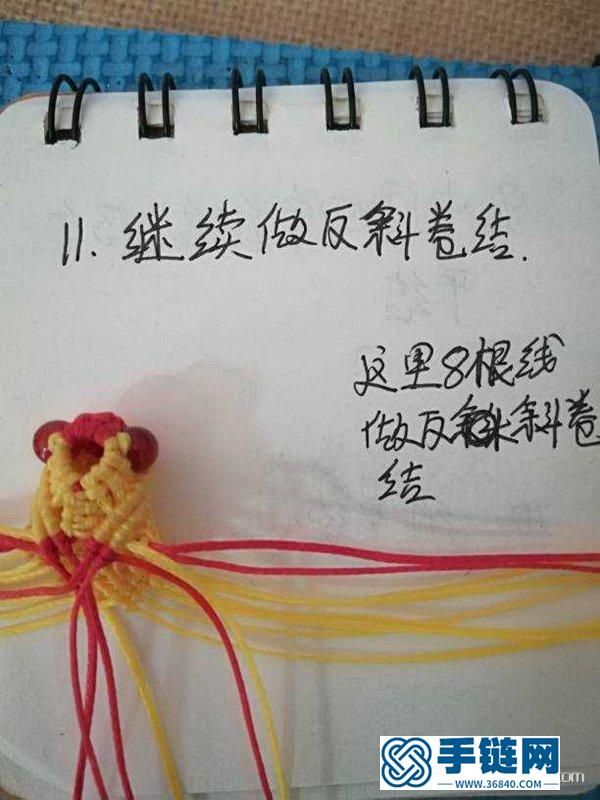 11. 继续做反斜卷结.
这里8根线
做反斜卷
结
手链网
www.36840.com